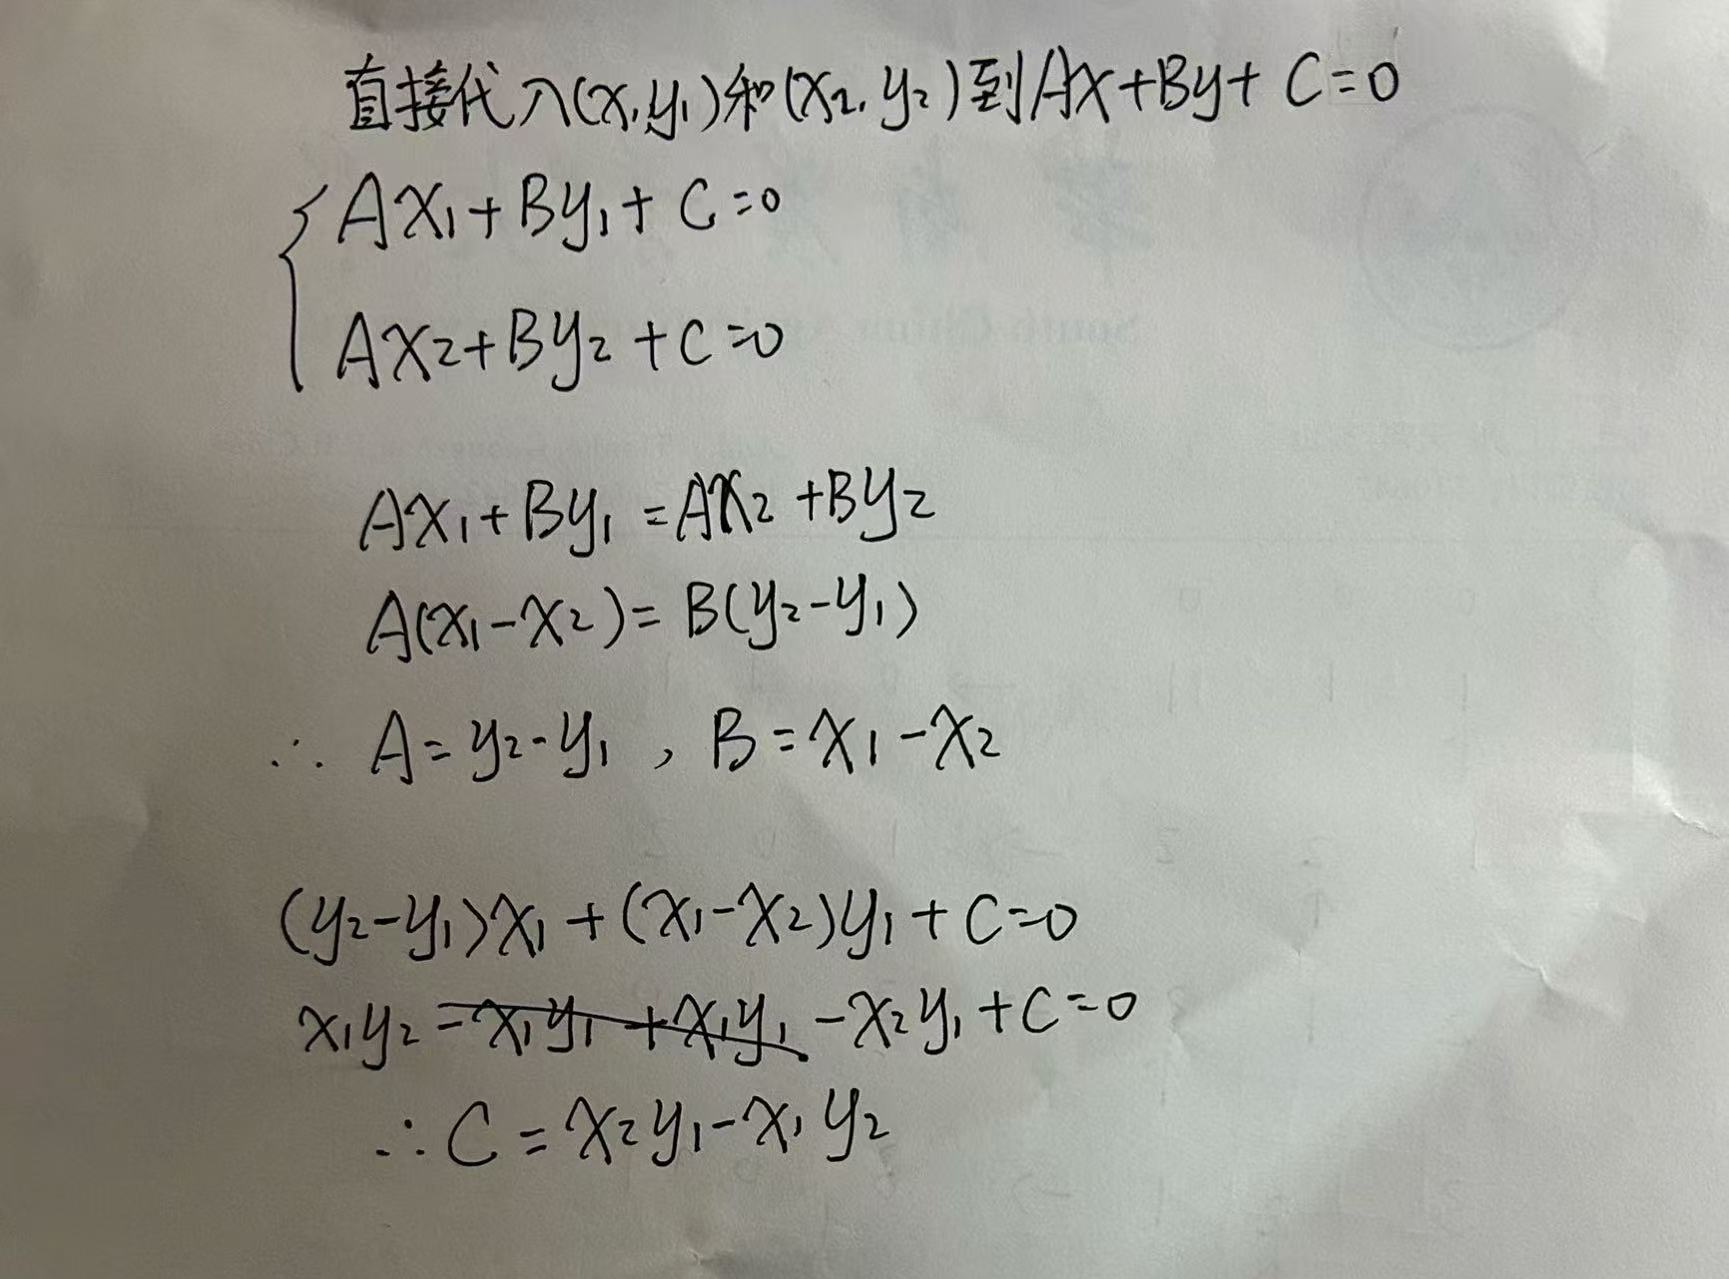 直接代入(x,y₁)和(x₂,y₂)到Ax+By+C=0
Ax₁+By₁+C=0
Ax₂+By₂+C=0
Ax₁+By₁=Ax₂+By₂
A(x₁-x₂)=B(y₂-y₁)
∴ A=y₂-y₁,B=x₁-x₂
(y₂-y₁)x₁+(x₁-x₂)y₁+C=0
x₁y₂-x₁y₁+x₁y₁-x₂y₁+C=0
∴C=x₂y₁-x₁y₂